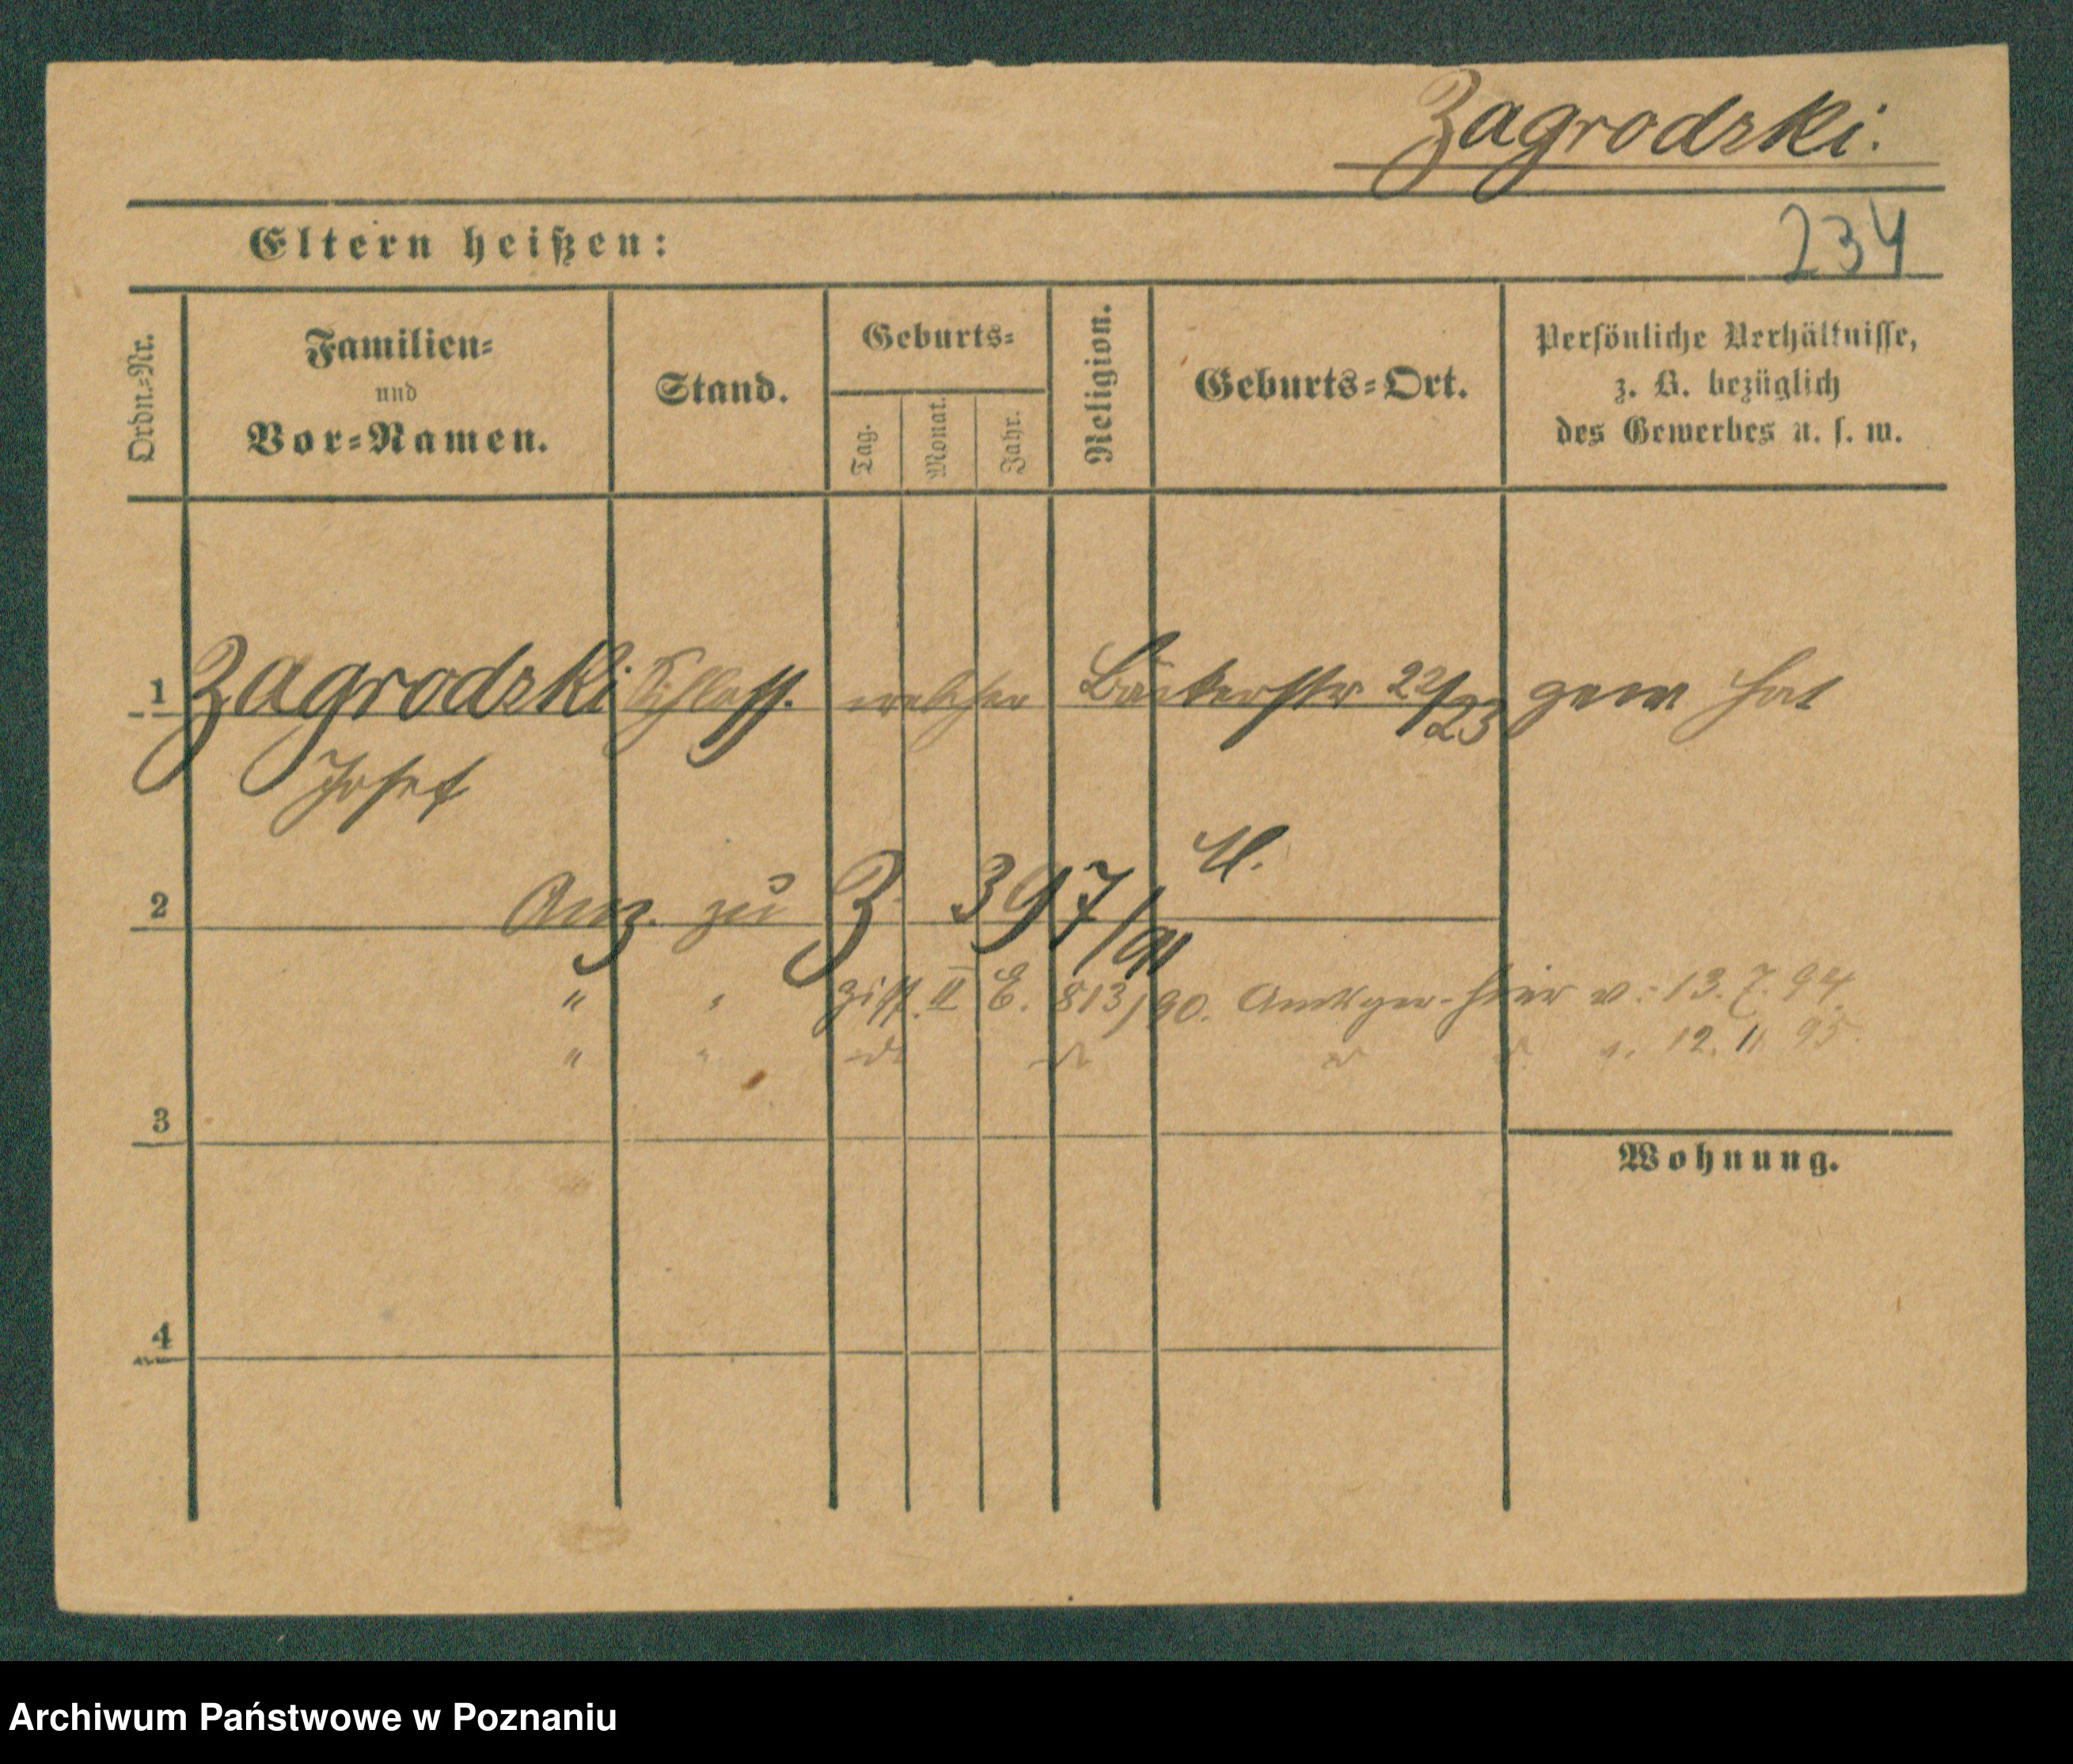 Zagrodzki.
Eltern heißen:
234
Ordn.-Nr.
Familien-
und
Vor-Namen.
Stand.
Geburts-
Tag.
Monat.
Jahr.
Religion.
Geburts-Ort.
Persönliche Verhältnisse,
z. B. bezüglich
des Gewerbes u. s. w.
1 Zagrodzki Schloss. welcher Bäckerstr 22/23 gew hat
Josef
2 Anz. zu Z. 397/91 U.
" " Zist. II E. 813/90. Amtsger. hier v. 13.7.94.
" " v. 12. 11 95.
3
Wohnung.
4
Archiwum Państwowe w Poznaniu